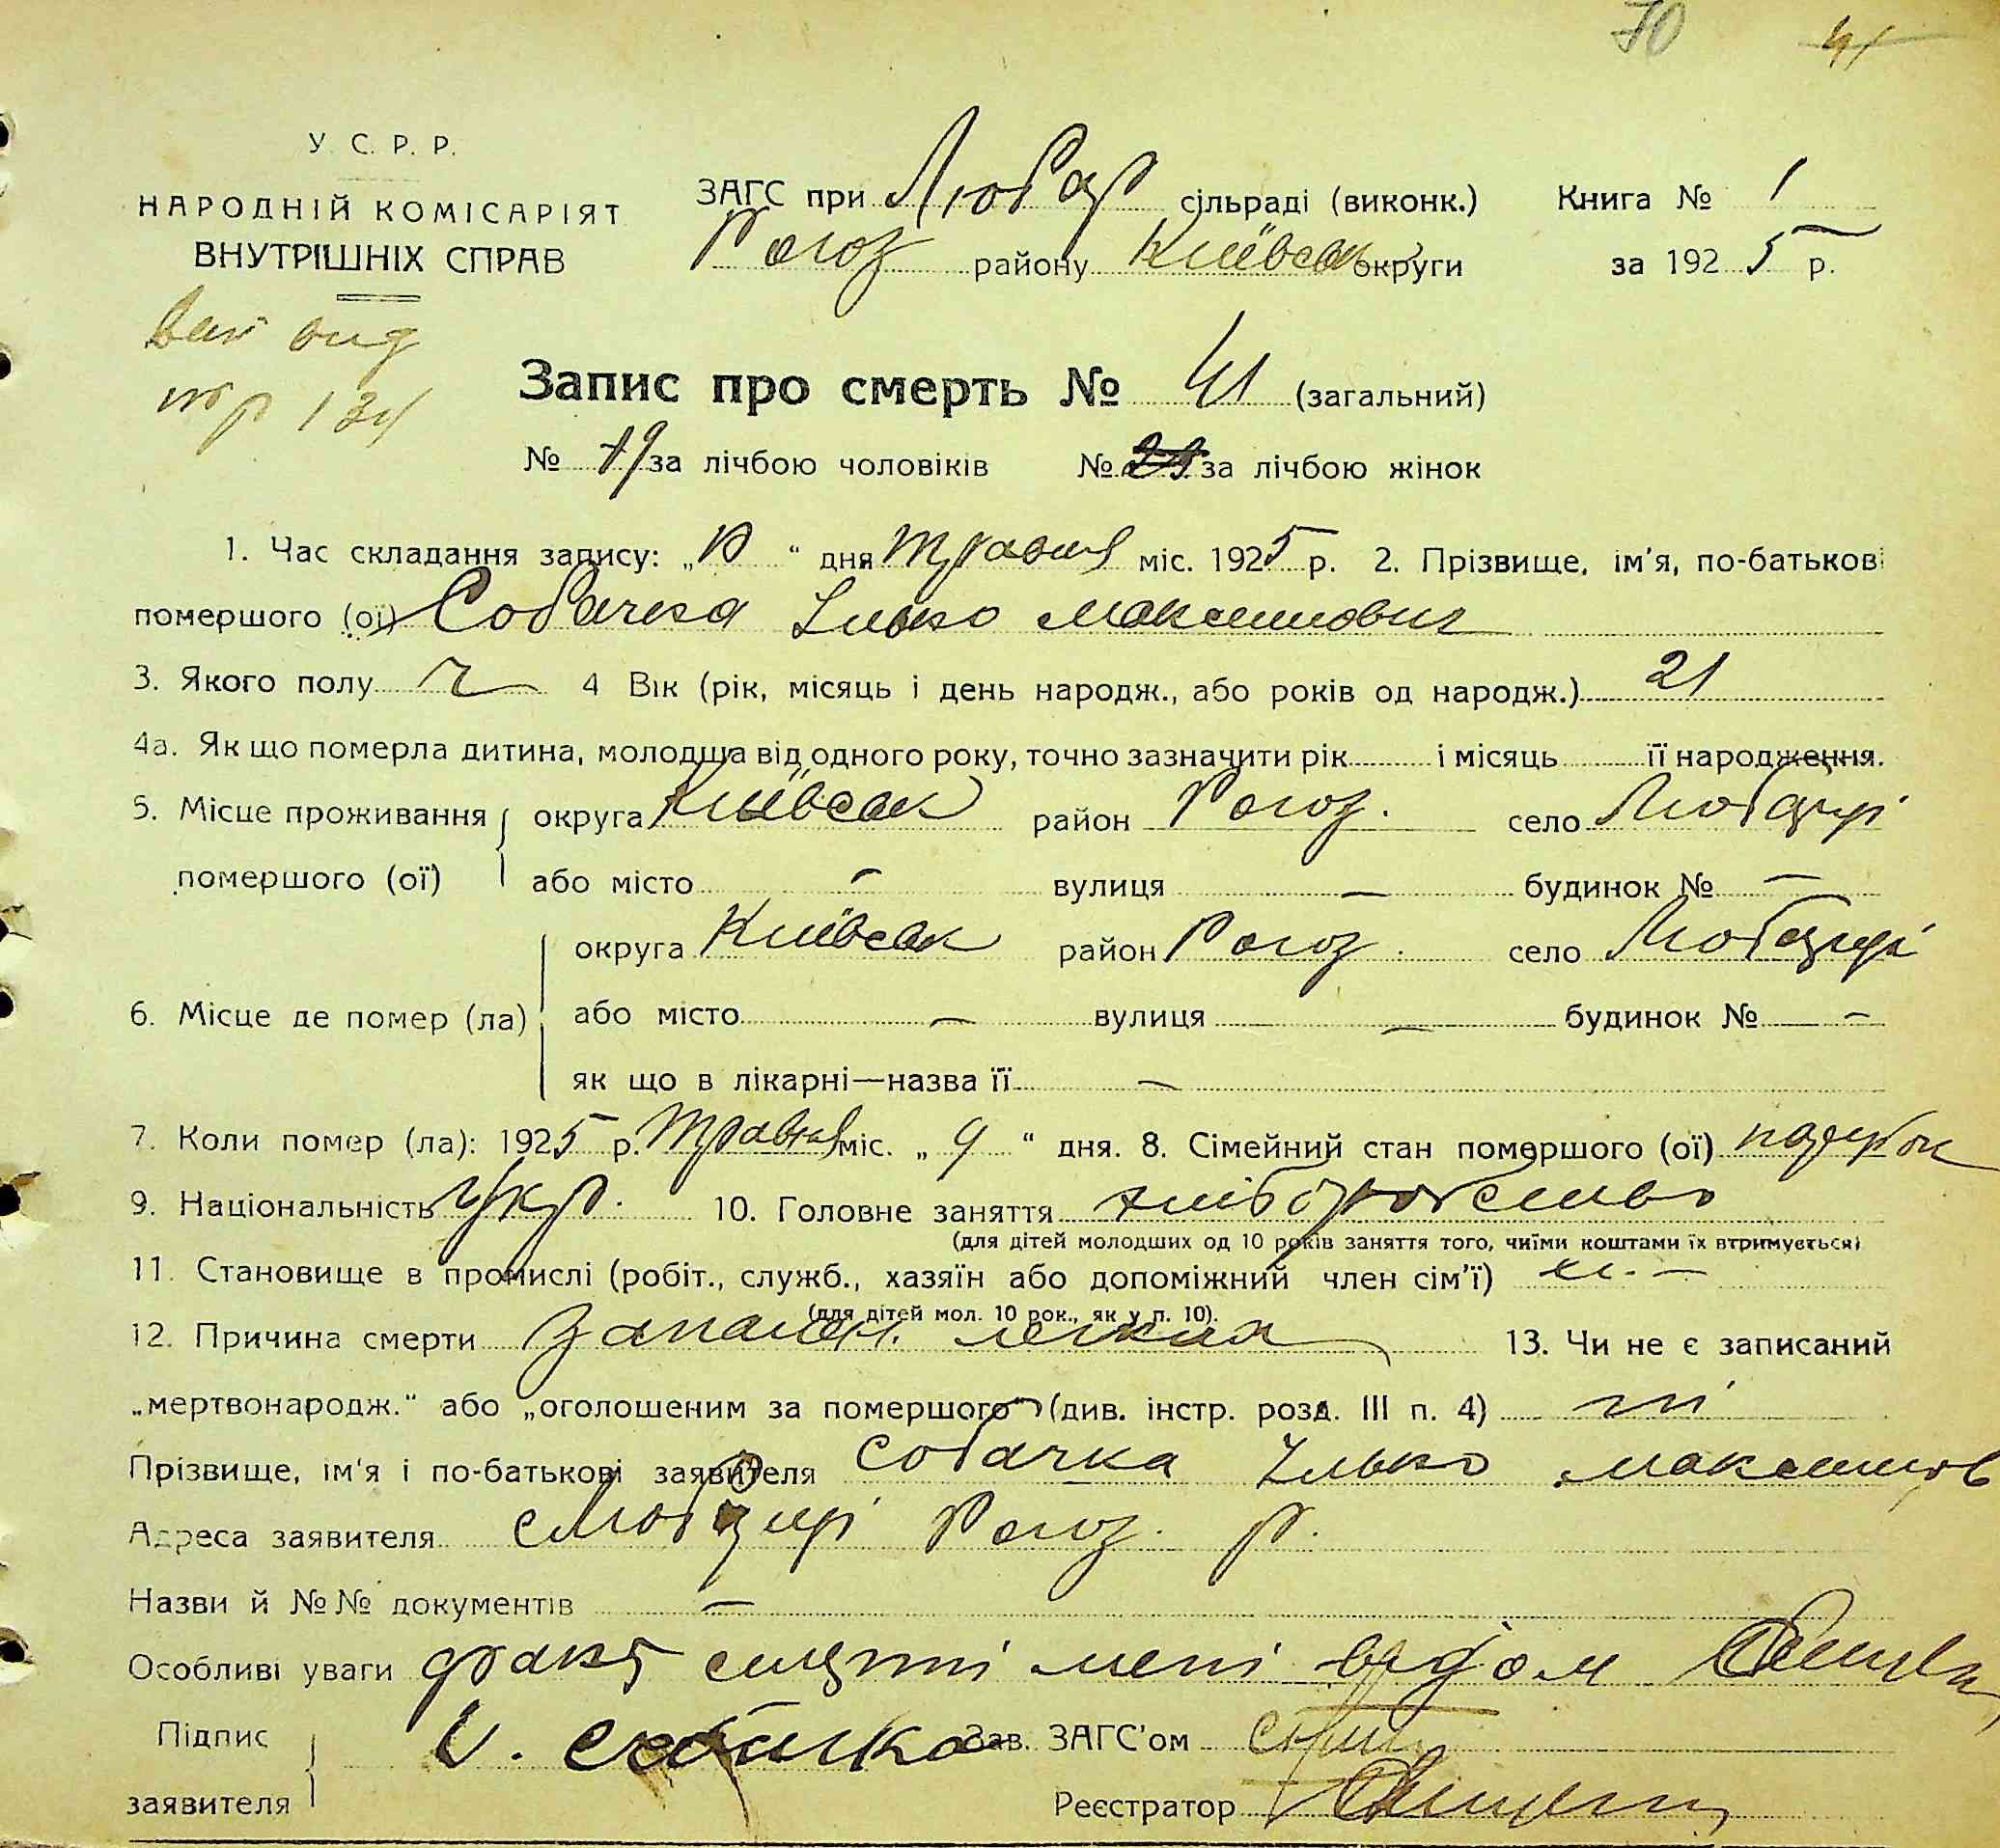 70 41
У. С. Р. Р.
НАРОДНІЙ КОМІСАРІЯТ
ВНУТРІШНІХ СПРАВ
ЗАГС при Любар сільраді (виконк.) Книга № 1
Рогоз району Київськ округи за 1925 р.
стр 134
Запис про смерть № 41 (загальний)
№ 19 за лічбою чоловіків № за лічбою жінок
1. Час складання запису: „10 “ дня травня міс. 1925 р. 2. Прізвище, ім'я, по-батькові
помершого (ої) Собачка Ілько Максимович
3. Якого полу ч 4 Вік (рік, місяць і день народж., або років од народж.) 21
4а. Як що померла дитина, молодша від одного року, точно зазначити рік і місяць її народження.
5. Місце проживання округа Київськ район Рогоз. село Любарці
помершого (ої) або місто — вулиця — будинок № —
округа Київськ район Рогоз. село Любарці
6. Місце де помер (ла) або місто — вулиця — будинок № —
як що в лікарні—назва її —
7. Коли помер (ла): 1925 р. Травня міс. „ 9 “ дня. 8. Сімейний стан помершого (ої) парубок
9. Національність Укр. 10. Головне заняття хліборобство
(для дітей молодших од 10 років заняття того, чиїми коштами їх втримується)
11. Становище в промислі (робіт., служб., хазяїн або допоміжний член сім'ї)
(для дітей мол. 10 рок., як у п. 10).
12. Причина смерти запален. легких 13. Чи не є записаний
„мертвонародж.“ або „оголошеним за помершого“ (див. інстр. розд. III п. 4) ні
Прізвище, ім'я і по-батькові заявителя Собачка Ілько Максимов
Адреса заявителя с Любарці Рогоз. р.
Назви й №№ документів —
Особливі уваги факт смерті мені відом
Підпис І. Собачка Зав. ЗАГС'ом
заявителя Реєстратор